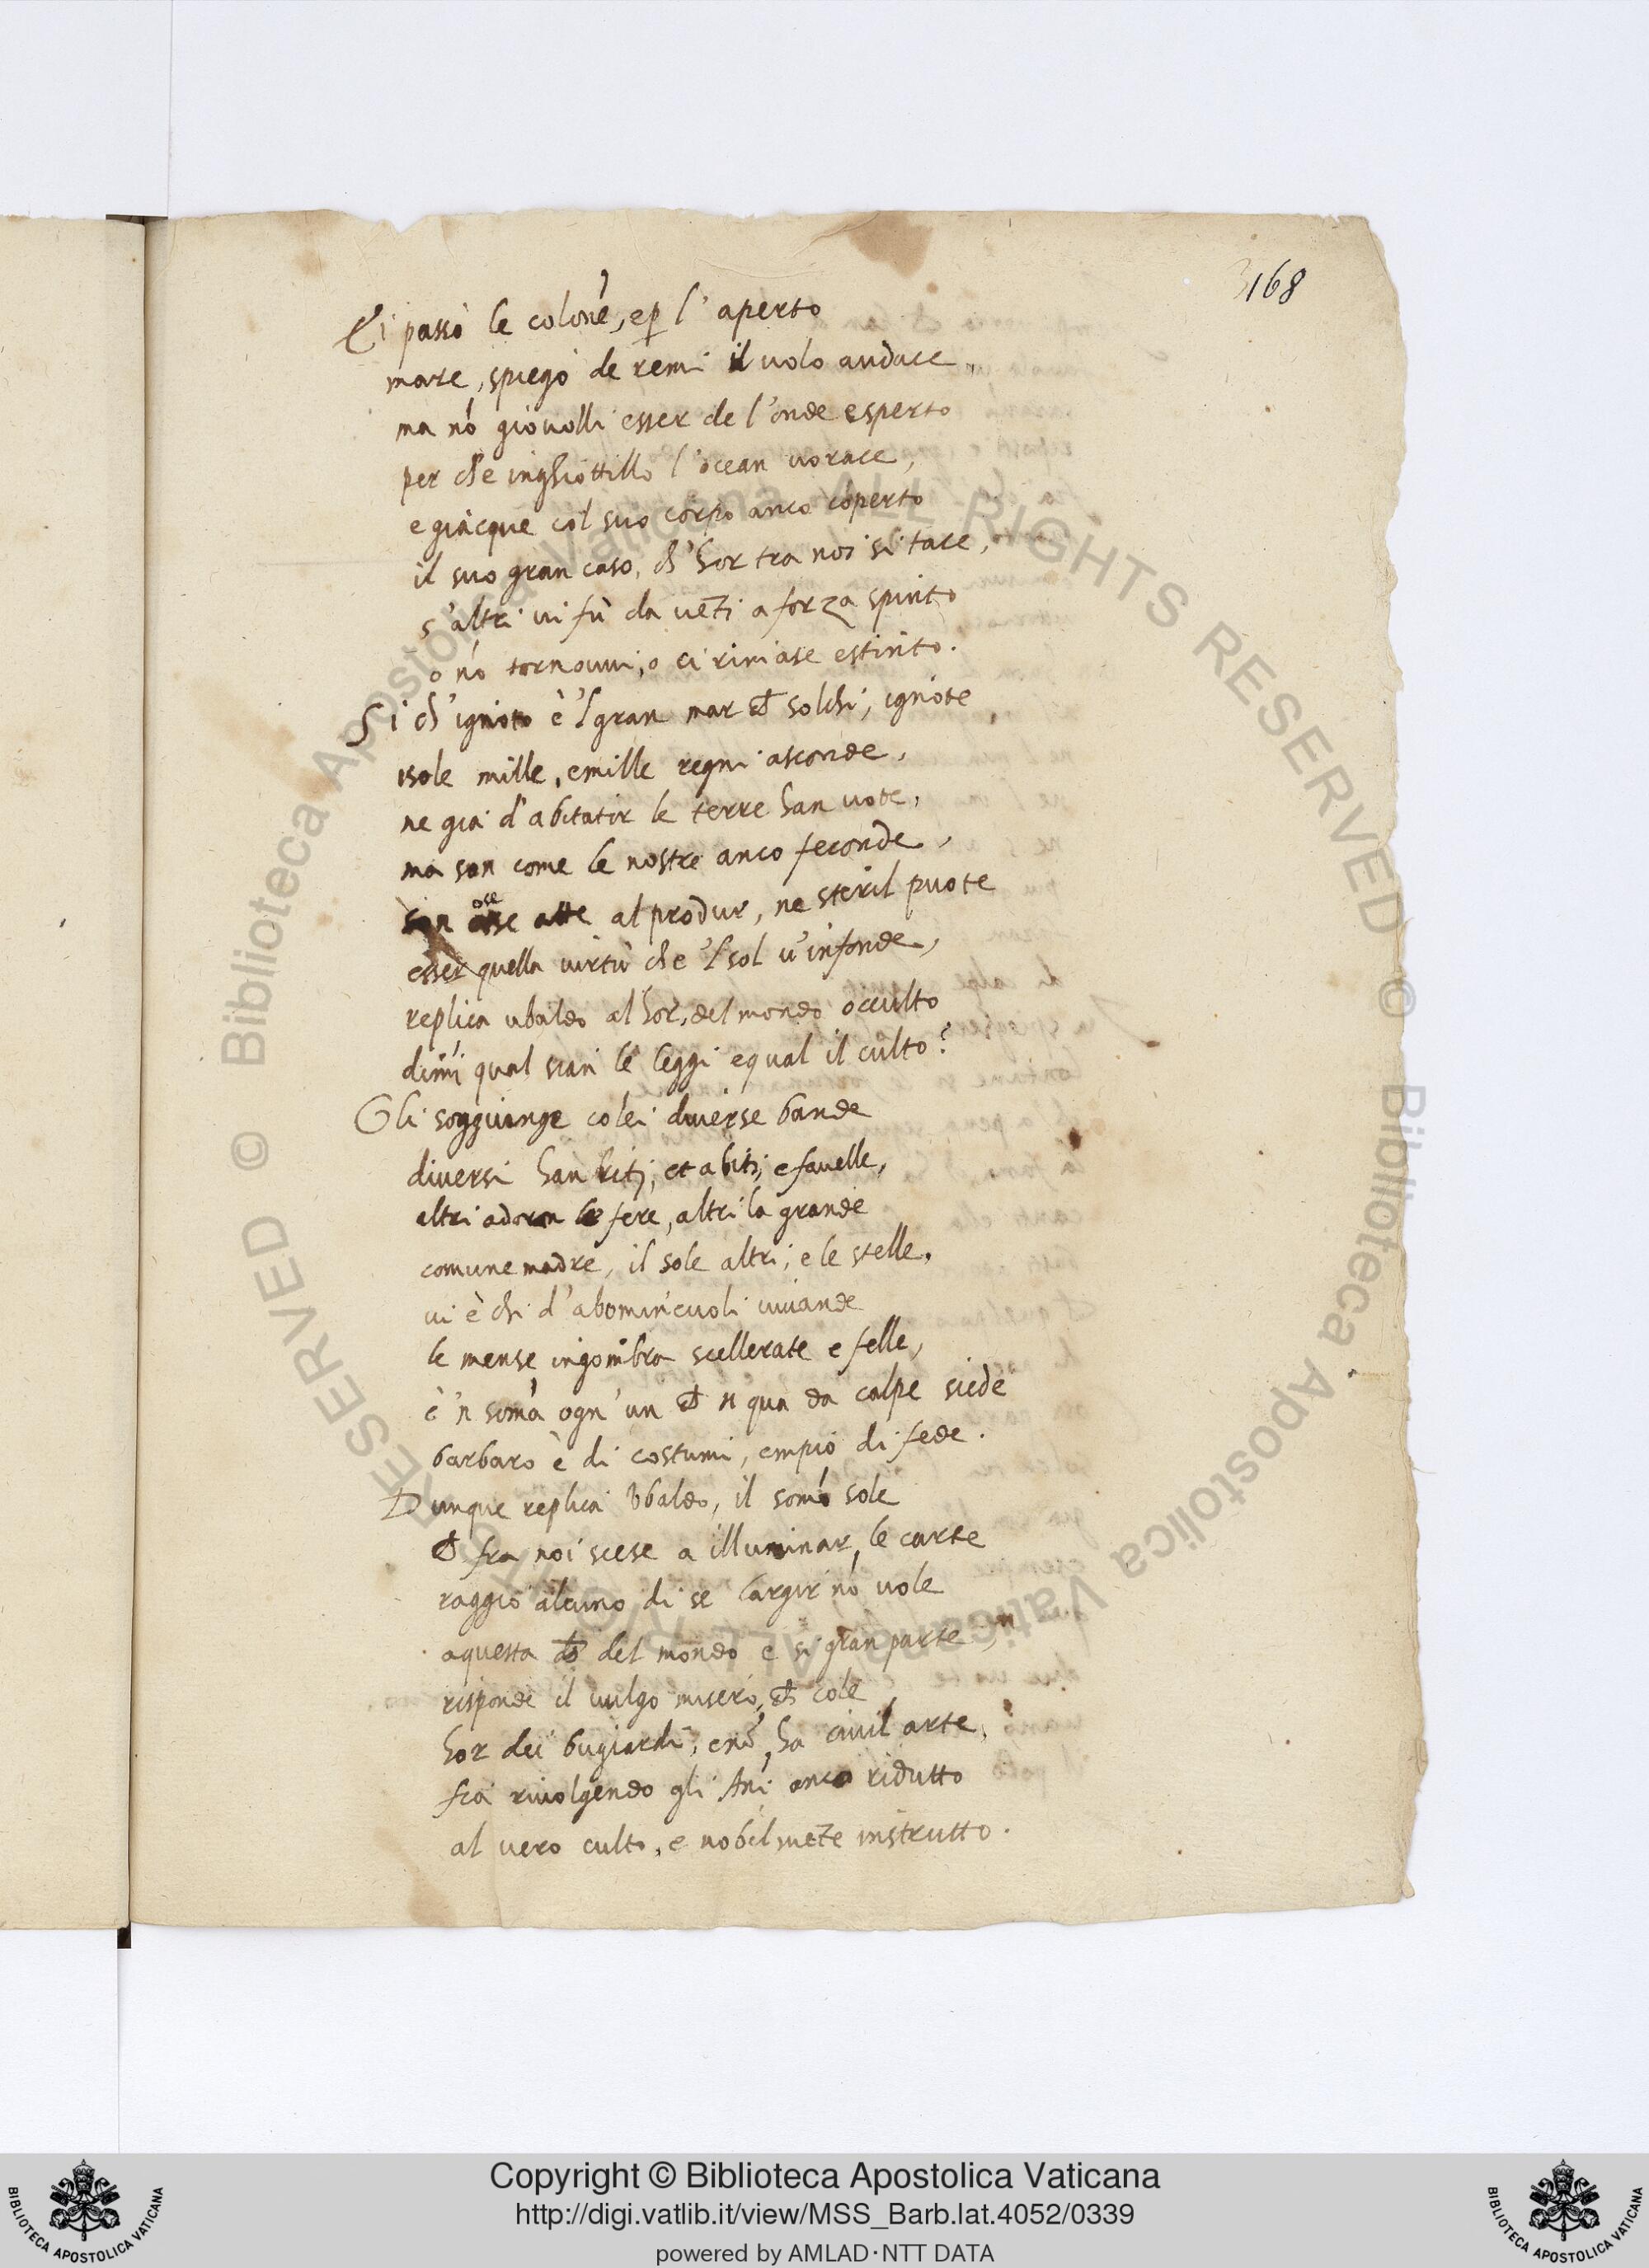 168
Ei passò le colonē, e ꝑ l'aperto
mare, spiegò de remi il uolo audace,
ma nō giouolli esser de l'onde esperto
per che inghiottillo l'ocean uorace,
e giacque col suo corpo anco coperto
il suo gran caso, ch'hor tra noi si tace,
s'altri ui fù da uēti a forza spinto
o nō tornoui, o ci rimase estinto.
Si ch'ignoto è 'l gran mar ch solchi, ignote
isole mille, e mille regni asconde,
ne gia d'abitatir le terre han uote,
ma son come le nostre anco feconde,
son atte al produr, ne steril puote
esser quella uirtù che 'l sol u'infonde,
replica ubaldo al hor, del mondo occulto
dim̄i qual sian le leggi e qual il culto?
Gli soggiunge colei diuerse bande
diuersi han riti, et abiti, e fauelle,
altri adora le fere, altri la grande
comune madre, il sole altri, e le stelle,
ui è chi d'abomineuoli uiuande
le mense ingombra scellerate e felle,
e 'n som̄a ogn'un ch n qua da calpe siede
barbaro è di costumi, empio di fede.
Dunque replica Vbaldo, il som̄o sole
ch fra noi scese a illuminar le carte
raggio alcuno di se largir nō uole
a questa ch del mondo e si gran parte,
risponde il uulgo misero, ch cole
hor dei bugiardi, e nō ha ciuil arte,
fia riuolgendo gli Ani anco ridutto
al uero culto, e nobilmēte instrutto.
© Biblioteca Apostolica Vaticana ALL RIGHTS RESERVED
© Biblioteca Apostolica Vaticana ALL RIGHTS RESERVED
Copyright © Biblioteca Apostolica Vaticana
http://digi.vatlib.it/view/MSS_Barb.lat.4052/0339
powered by AMLAD·NTT DATA
BIBLIOTECA APOSTOLICA VATICANA
BIBLIOTECA APOSTOLICA VATICANA